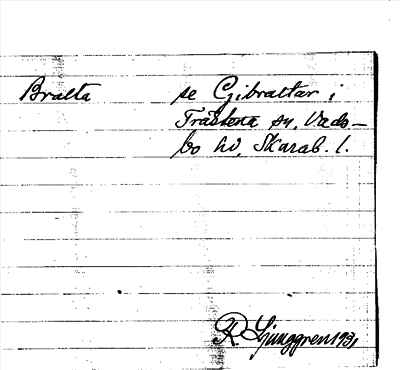 Bralta se Gibraltar i
Trästena sn, Vads-
bo hd, Skarab. l.
R Ljunggren 1931